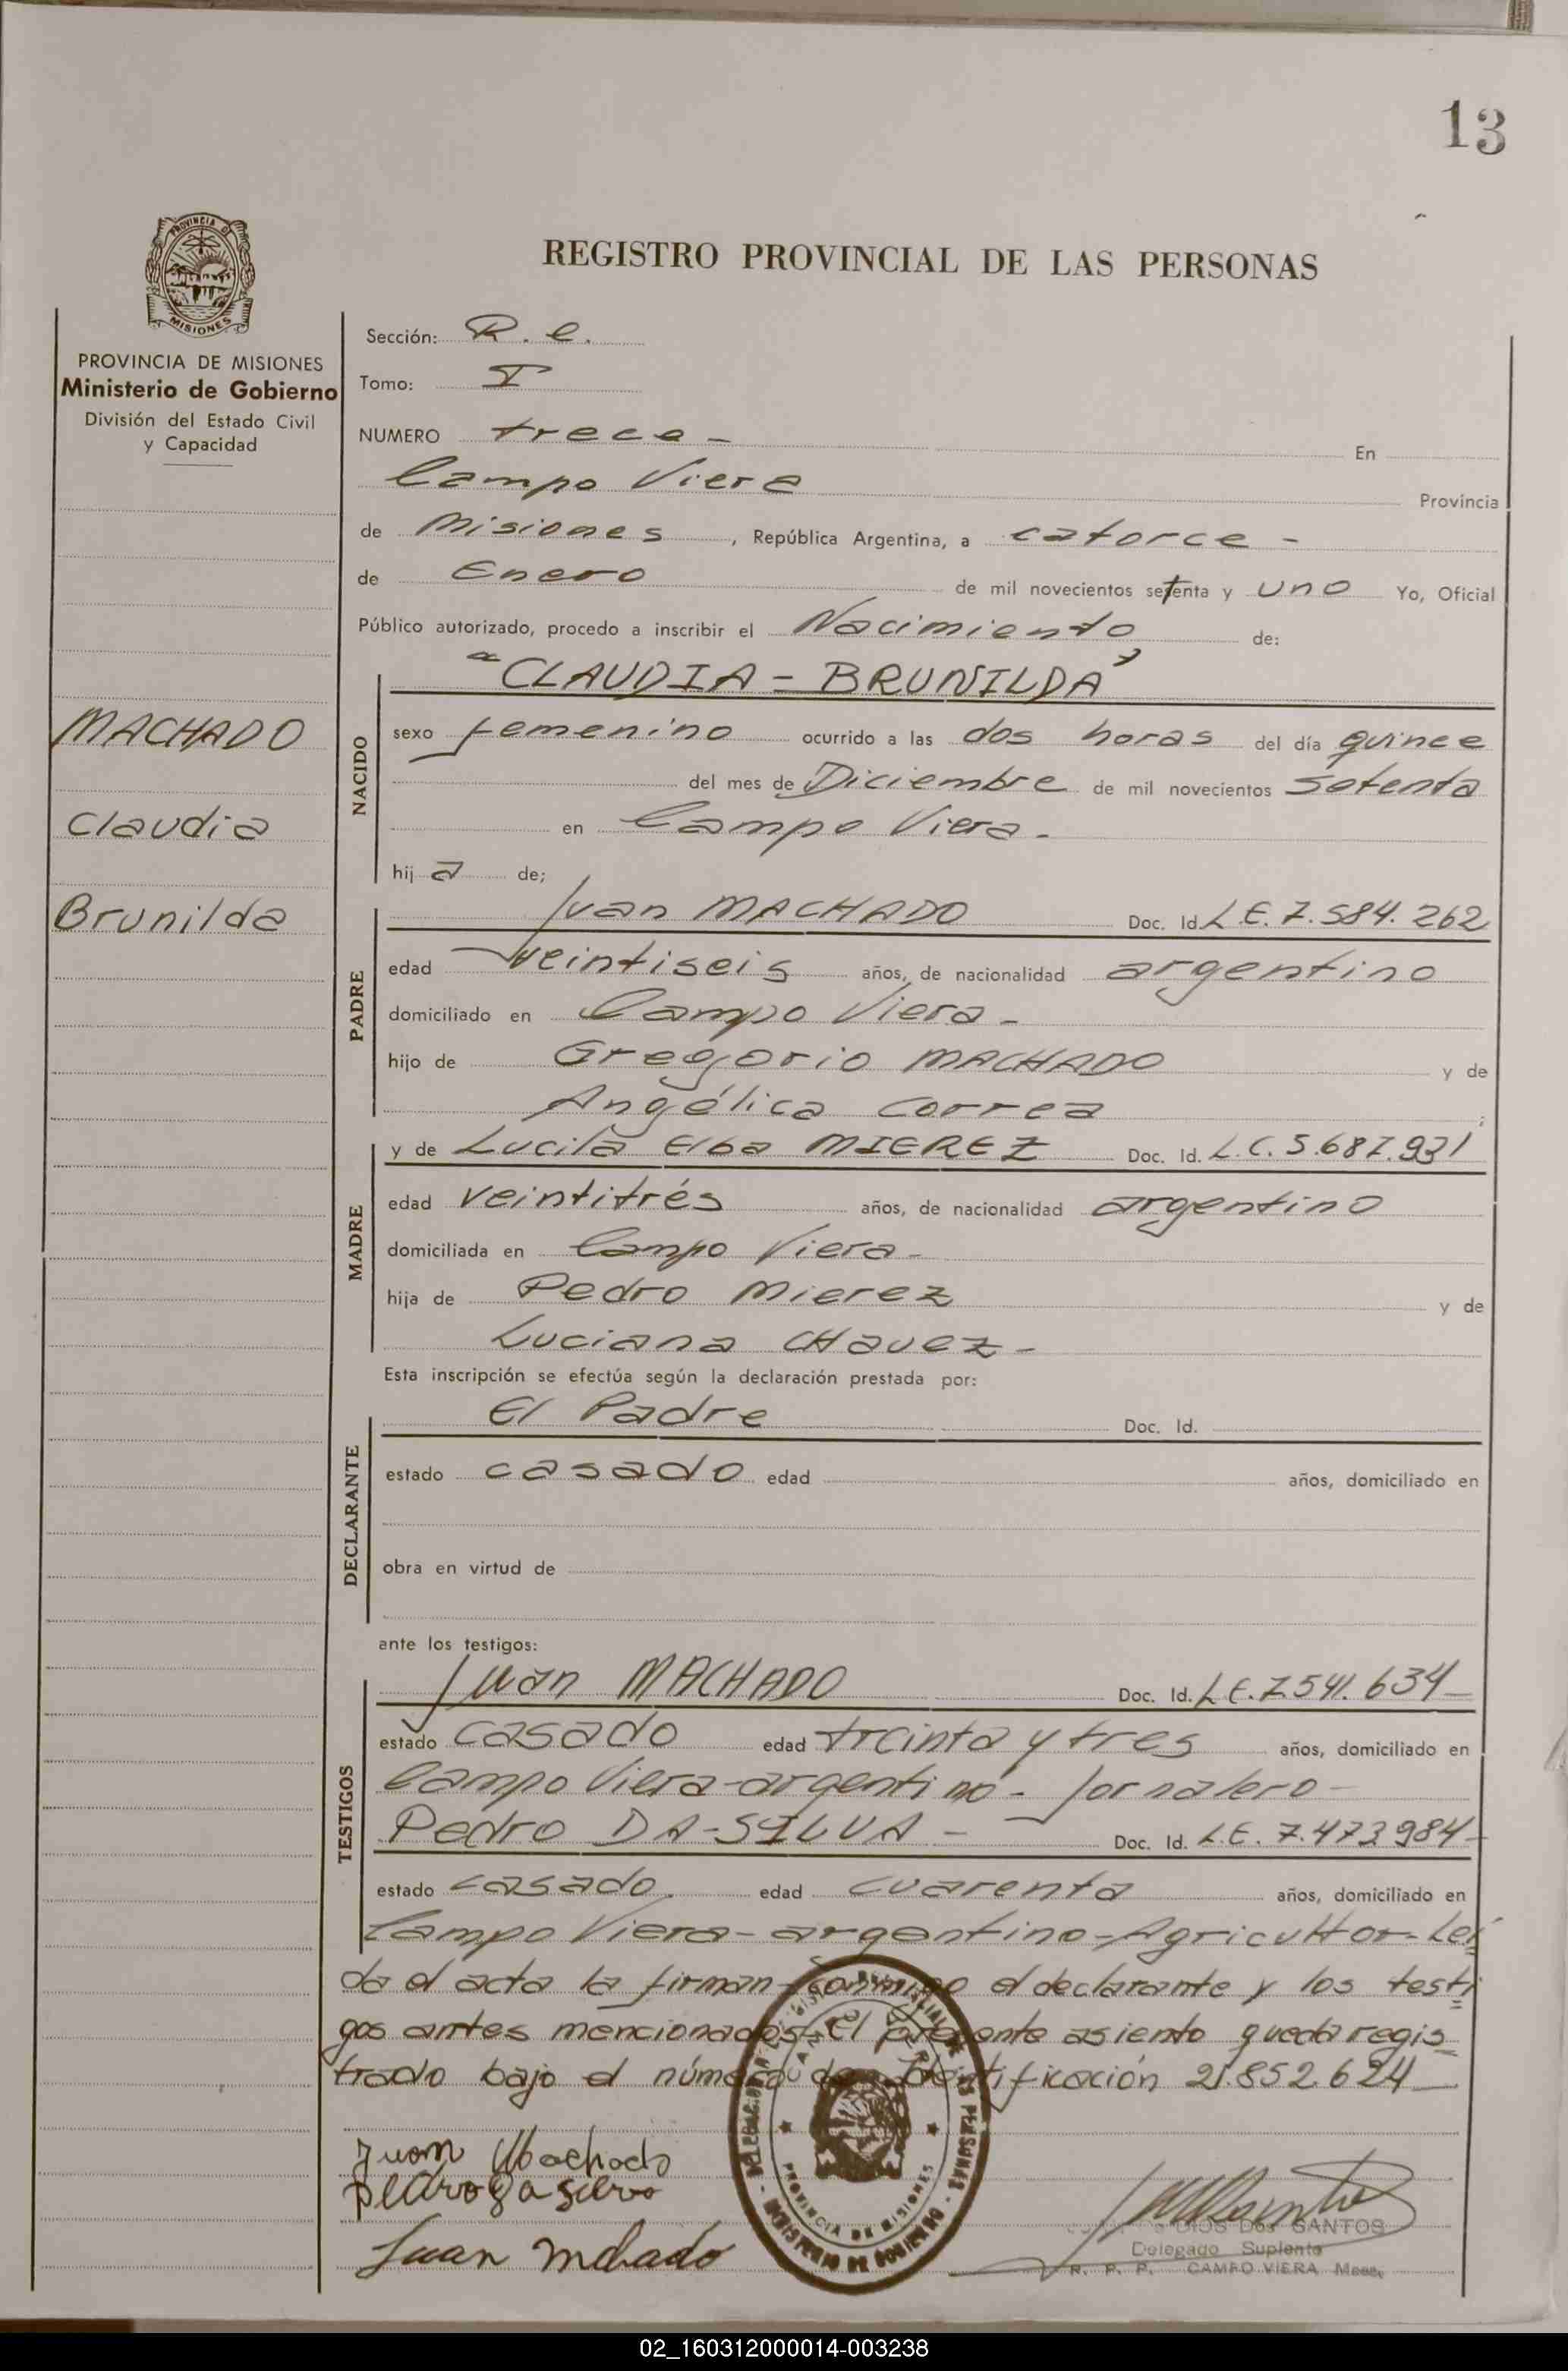 13
PROVINCIA DE
MISIONES
REGISTRO PROVINCIAL DE LAS PERSONAS
PROVINCIA DE MISIONES
Ministerio de Gobierno
División del Estado Civil
y Capacidad
MACHADO
Claudia
Brunilda
Sección: R.C.
Tomo: I
NUMERO trece - En
Campo Viera Provincia
de Misiones, República Argentina, a catorce -
de Enero de mil novecientos setenta y uno Yo, Oficial
Público autorizado, procedo a inscribir el Nacimiento de:
"CLAUDIA - BRUNILDA"
NACIDO
sexo femenino ocurrido a las dos horas del día quince
del mes de Diciembre de mil novecientos setenta
en Campo Viera -
hij a de;
PADRE
Juan MACHADO Doc. Id. L.E. 7.584.262
edad veintiseis años, de nacionalidad argentino
domiciliado en Campo Viera -
hijo de Gregorio MACHADO y de
Angélica Correa ;
MADRE
y de Lucila Elba MIEREZ Doc. Id. L.C. 5.687.931
edad veintitrés años, de nacionalidad argentino
domiciliada en Campo Viera -
hija de Pedro Mierez y de
Luciana CHavez -
Esta inscripción se efectúa según la declaración prestada por:
DECLARANTE
El Padre Doc. Id.
estado casado edad años, domiciliado en
obra en virtud de
ante los testigos:
TESTIGOS
Juan MACHADO Doc. Id. L.E. 7.541.634 -
estado casado edad treinta y tres años, domiciliado en
Campo Viera - argentino - Jornalero -
Pedro DA-SILVA - Doc. Id. L.E. 7.473984 -
estado casado. edad cuarenta años, domiciliado en
Campo Viera - argentino - Agricultor - Leí
da el acta la firman conmigo el declarante y los testi
gos antes mencionados - El presente asiento queda regis
trado bajo el número de Identificación 21.852.624 -
Juan Machado
pedro da silva
Juan Mchado
PROVINCIA DE MISIONES
MINISTERIO DE GOBIERNO
DIOS Dos SANTOS
Delegado Suplente
R. P. P. CAMPO VIERA Mnes.
02_160312000014-003238